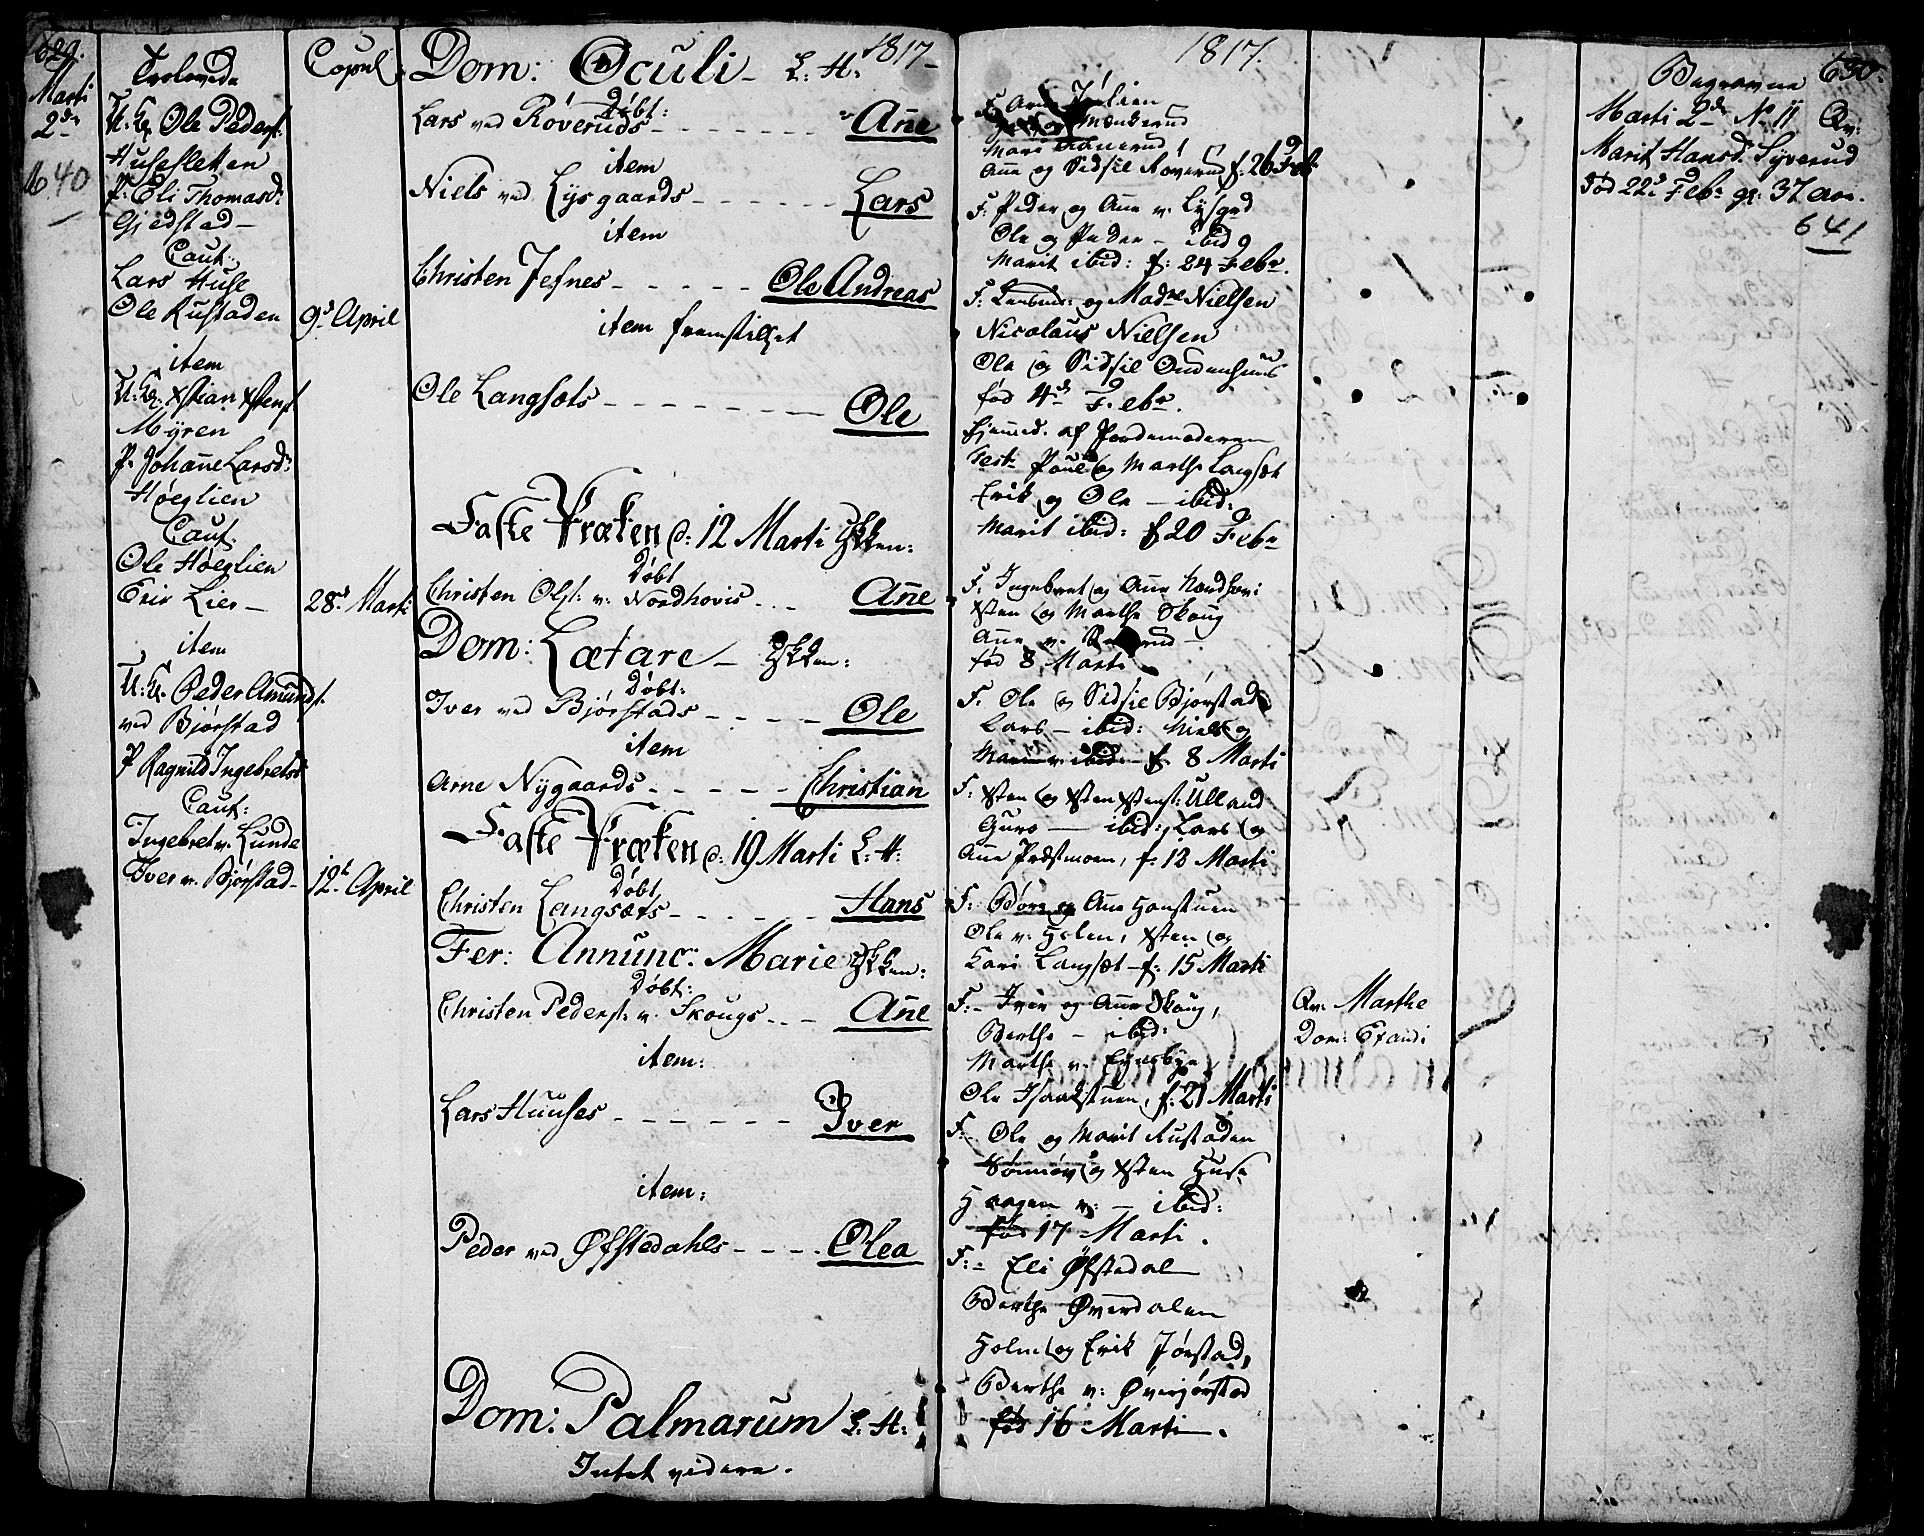 629.
Trolovede
Marti
2den
U. K. Ole Peders:
Husesletten
P. Eli Thomasd:
Gjedstad –
Caut:
Lars Huse
Ole Rustaden
640
item
U. K. Xstian Xstens:
Myren
P. Johañe Larsd:
Høeglien
Caut.
Ole Høeglien
Eric Lier –
item
U. K. Peder Amunds:
ved Bjørstad
P Ragnild Ingebretsd
Caut:
Ingebret v. Lunde
Iver v. Bjørstad –
Copul.
9d April
28d Marti
12t April
Dom: Oculi – L. H. 1817 –
Døbt:
Lars ved Røveruds – – – Añe
item
Niels ved Lysgaards – – – Lars
item
Christen Jefnes – – – Ole Andreas
item fremstillet
Ole Langsæts – – – Ole
Faste Præken d: 12 Marti
Døbt
Christen Ols: v. Nordhovis – – Añe
Dom: Lætare –
Døbt:
Iver ved Bjørstads – – – Ole
item
Arne Nygaards – – – Christian
Faste Præken d: 19 Marti L: H:
Døbt
Christen Langsæts – – – Hans
Fer: Annunc: Marie
Døbt:
Christen Peders: v. Skougs – – Añe
item:
Lars Huuses – – – Iver
item:
Peder ved Øfstedahls – – – Olea
Dom: Palmarum L. H:
Intet videre.
1817.
F. Arne Jørlien
Mari
Ane og Sidsil Røverud f. 26 Feb
F: Peder og Ane v. Lysgrd
Ole og Peder – ibid
Marit ibid: f: 24 Febr.
F: og Madme Nielsen
Nicolaus Nielsen
Ole og Sidsil
fød 4de Febr.
Hjemmed. af Jordemoderen
Test: Poul og Marthe Langsæt
Erik og Ole – ibid:
Marit ibid: f 20 Febr
F. Ingebret og Ane Nordhovi
Xsten og Marthe Skoug
Ane v.
fød 8 Marti
F. Ole og Sidsil Bjørstad
Lars – ibid: Niels og
Mari v. ibid – f. 8 Marti
F. Xsten og Xsten Xstens: Ulland
Guro – ibid:, Lars og
Ane Præstmoen, f. 12 Marti
F: Børe og Ane Hanstuen
Ole v. Holen, Xsten og
Kari Langsæt – f. 15 Marti
F. – Iver og Ane Skoug,
Berthe – ibid:
Marthe v.
Ole Isaakstuen, f. 21 Marti
Qv: Marthe
Dom: Exaudi
F: – Ole og Marit Rustaden
Sønnøv og Xsten Huse
Haagen v: – ibid:
fød 17 Marti.
F: – Eli Øfstedal
Berthe Øverdalen
Holm og Erik Jørstad,
Berthe v: Øverjørstad
fød 16 Marti.
630.
Begravne
Marti 2de No 11 Qv:
Marit Hansd. Syverud
død 22d Febr gl: 37 aar.
641